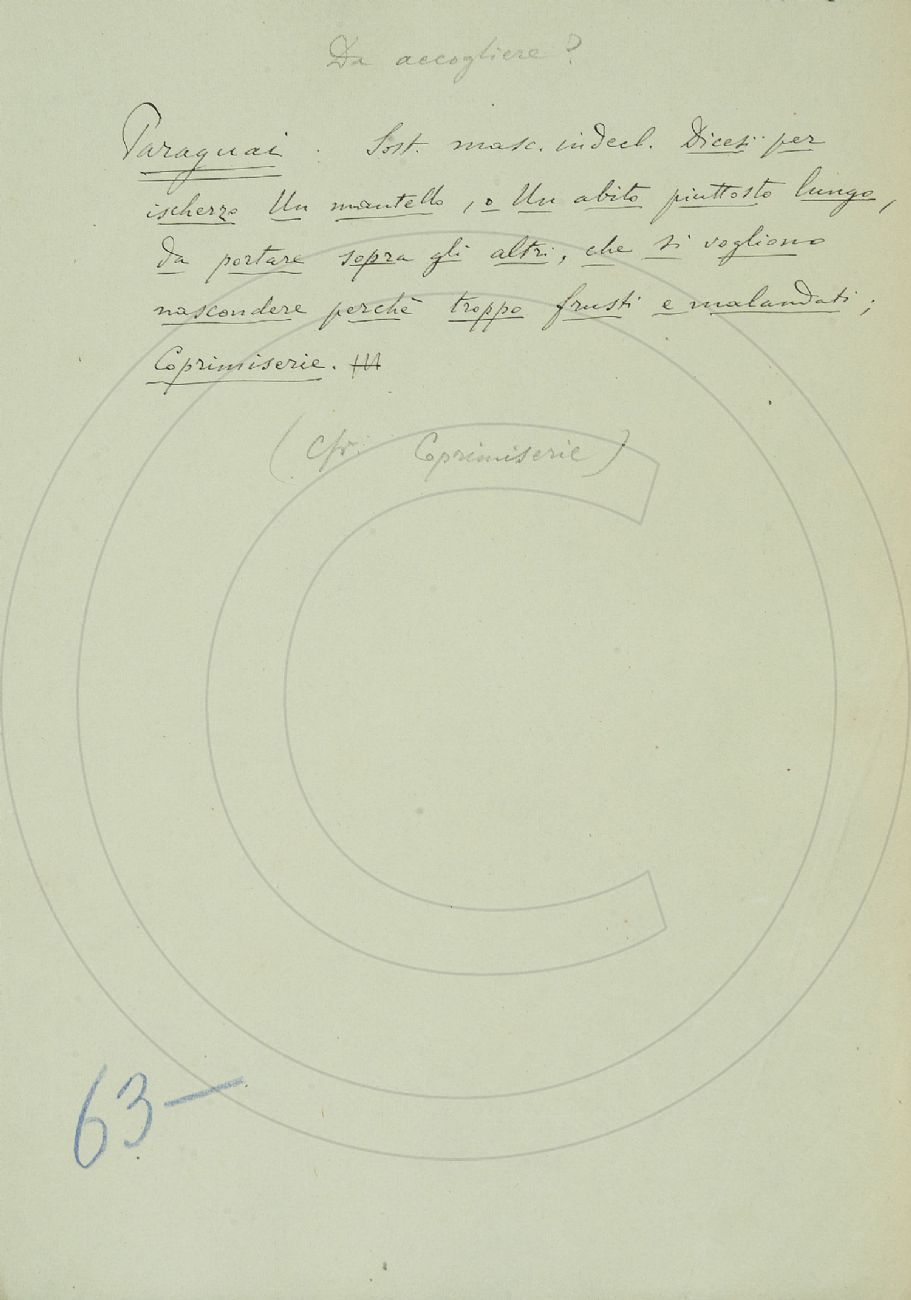 Da accogliere?
Paraguai. Sost. masc. indecl. Dicesi per
ischerzo Un mantello, o Un abito piuttosto lungo,
da portare sopra gli altri, che si vogliono
nascondere perchè troppo frusti e malandati;
Coprimiserie.
(Cfr. Coprimiserie)
63—